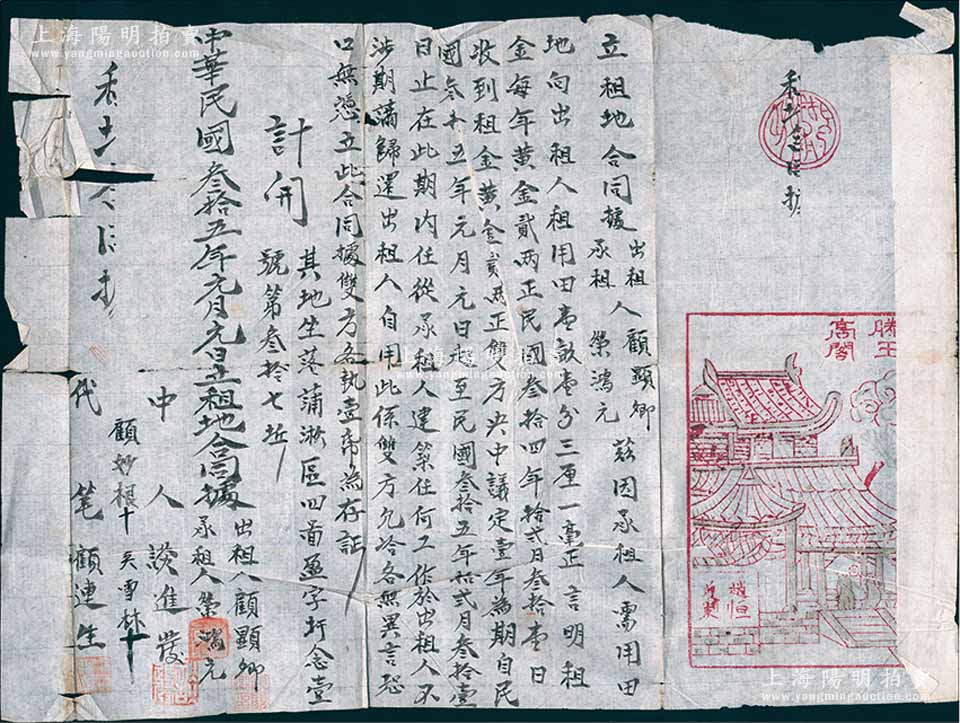 上海陽明拍賣
www.yangmingauction.com
滕王
高閣
立租地合同據出租人顧顯卿
承租 榮鴻元 茲因承租人需用田
地向出租人租用田壹畝壹分三厘一毫正言明租
金每年黃金貳兩正民國叁拾四年拾弍月叁拾壹日
收到租金黃金貳兩正雙方央中議定壹年為期自民
國叁十五年元月元日起至民國叁拾五年拾弍月叁拾壹
日止在此期內任從承租人建築任何工作於出租人不
涉期滿歸還出租人自用此係雙方允洽各無異言恐
口無憑立此合同據雙方各執壹帋為存証
計開
其地坐落蒲淞區四啚盈字圩念壹
號第叁拾七坵
中華民國叁拾五年元月元日立租地合同據出租人顧顯卿
承租人榮鴻元
中人 談進發
顧妙根十
吳雪林十
代筆 顧連生
上海陽明拍賣
www.yangmingauction.com
上海陽明拍賣
www.yangmingauction.com